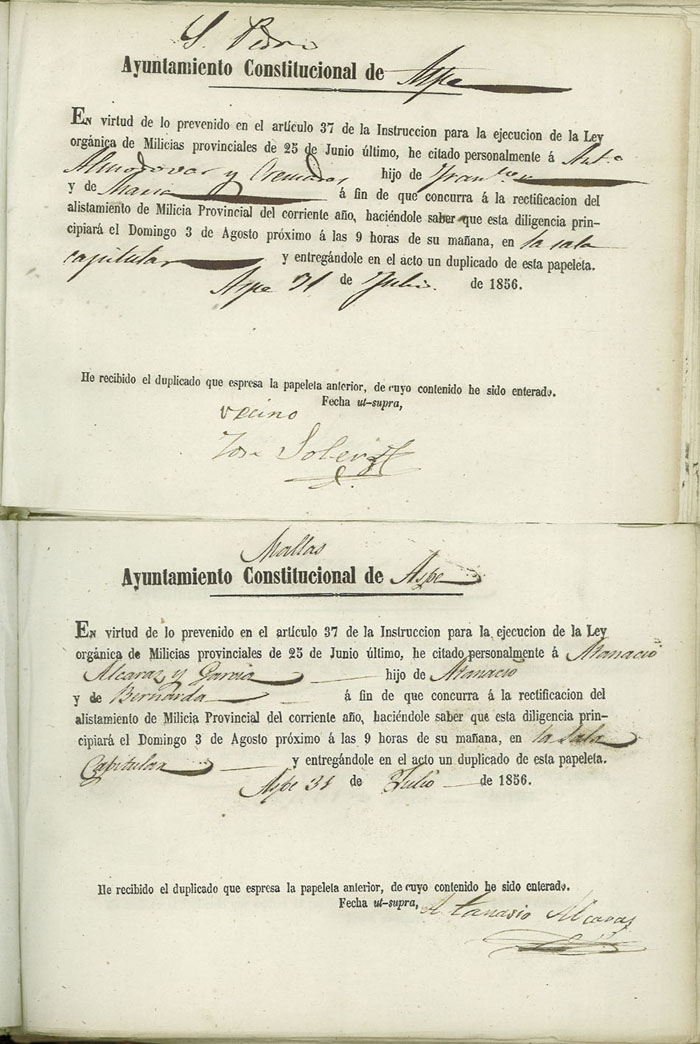 S. Pedro
Ayuntamiento Constitucional de Aspe
EN virtud de lo prevenido en el artículo 37 de la Instruccion para la ejecucion de la Ley
orgánica de Milicias provinciales de 25 de Junio último, he citado personalmente á Ant.º
Almodovar y Cremades hijo de Fran.co
y de Maria á fin de que concurra á la rectificacion del
alistamiento de Milicia Provincial del corriente año, haciéndole saber que esta diligencia prin-
cipiará el Domingo 3 de Agosto próximo á las 9 horas de su mañana, en la sala
capitular y entregándole en el acto un duplicado de esta papeleta.
Aspe 31 de Julio de 1856.
He recibido el duplicado que espresa la papeleta anterior, de cuyo contenido he sido enterado.
Fecha ut-supra,
vecino
Jose Soler
Mallas
Ayuntamiento Constitucional de Aspe
EN virtud de lo prevenido en el artículo 37 de la Instruccion para la ejecucion de la Ley
orgánica de Milicias provinciales de 25 de Junio último, he citado personalmente á Atanacio
Alcaraz y Garcia hijo de Atanacio
y de Bernarda á fin de que concurra á la rectificacion del
alistamiento de Milicia Provincial del corriente año, haciéndole saber que esta diligencia prin-
cipiará el Domingo 3 de Agosto próximo á las 9 horas de su mañana, en la Sala
Capitular y entregándole en el acto un duplicado de esta papeleta.
Aspe 31 de Julio de 1856.
He recibido el duplicado que espresa la papeleta anterior, de cuyo contenido he sido enterado.
Fecha ut-supra, Atanasio Alcaras